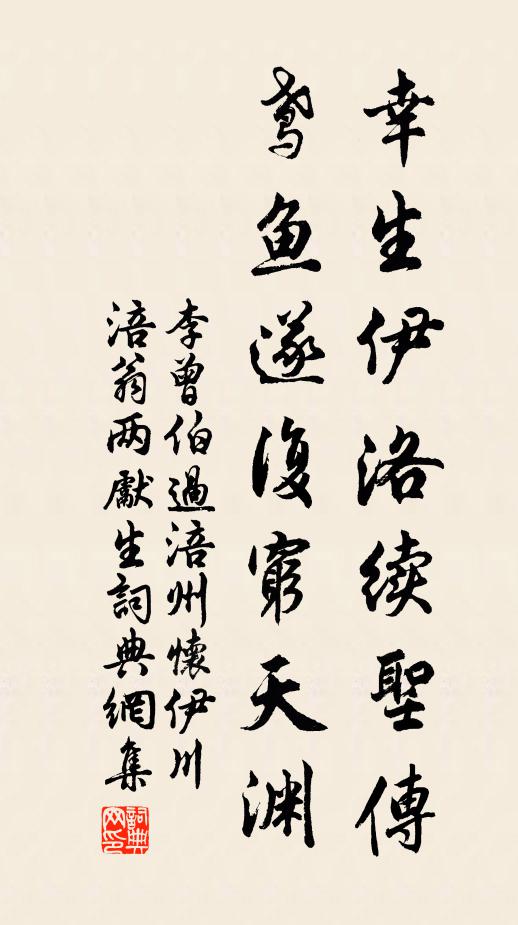 幸生伊洛续聖傳
鸢魚遂復窮天渊
李曾伯過涪州懷伊川
涪翁两獻生詞典網集
詞典
网印